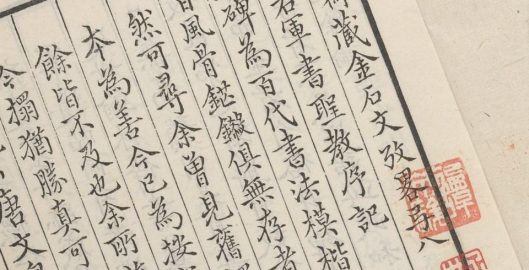 藏金石文攷畧
右軍書聖教序記
碑為百代書法模楷
風骨俱無存者
然可尋余曾見舊
本為善今已為按
餘皆不及也余所
今搨猶勝真可
唐文